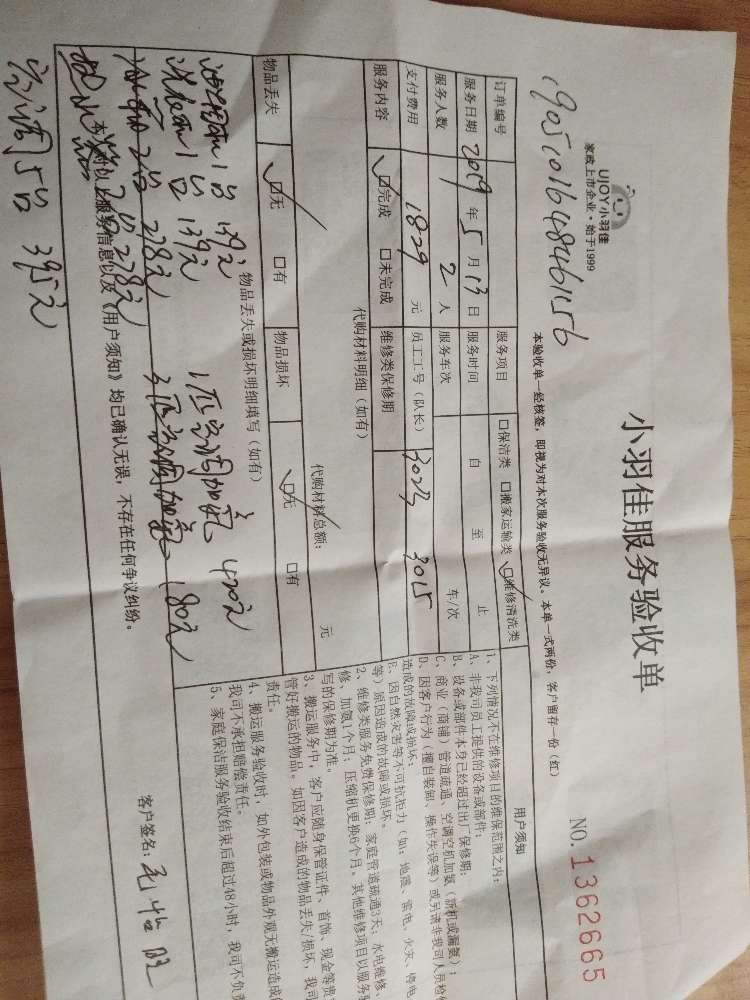 UJOY小羽佳
家政上市企业·始于1999
小羽佳服务验收单
NO. 1362665
本验收单一经核签，即视为对本次服务验收无异议。本单一式两份，客户留存一份（红）
订单编号
服务项目 □保洁类 □搬家运输类 ☑维修清洗类
服务日期 2019 年 5 月 13 日 服务时间 自 至 止
服务人数 2 人 服务车次 车/次
支付费用 1829 元 员工工号（队长） 3023 3015
服务内容 ☑完成 □未完成 维修类保修期
代购材料明细（如有）
代购材料总额： 元
物品丢失 ☑无 □有 物品损坏 ☑无 □有
物品丢失或损坏明细填写（如有）
油烟机1台 139元
洗衣机1台 139元
2台 278元
278元
空调5台 395元
420元
180元
本人对以上服务信息以及《用户须知》均已确认无误，不存在任何争议纠纷。
客户签名：
用户须知
1、下列情况不在维修项目的维保范围之内：
A、非我司员工提供的设备或部件；
B、设备或部件本身已经超过出厂保修期；
C、商业（商铺）管道疏通、空调空机加氨（新机或漏氨）；
D、因客户行为（擅自装卸、操作失误等）或另请非我司人员检修
造成的故障或损坏；
E、因自然灾害等不可抗拒力（如：地震、雷电、火灾、停电
等）原因造成的故障或损坏。
2、维修类服务免费保修期：家庭管道疏通3天；水电维修、
修、加氨1个月；压缩机更换6个月。其他维修项目以服务验
写的保修期为准。
3、搬运服务中，客户应随身保管证件、首饰、现金等贵
管好搬运的物品。如因客户造成的物品丢失/损坏，我司
责任。
4、搬运服务验收时，如外包装或物品外观无搬运造成的
我司不承担赔偿责任。
5、家庭保洁服务验收结束后超过48小时，我司不负责